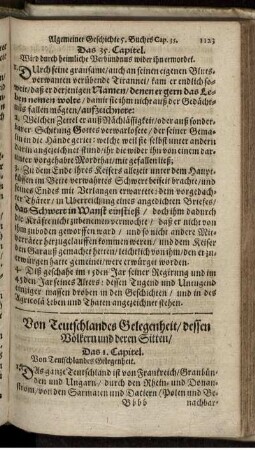 Algemeiner Geschichte 5. Buches Cap. 11. 1123
Das 35. Capitel.
Wird durch heimliche Verbündnus wider ihn ermordet.
Durch seine grausame/ auch an seinen eigenen Bluts-
verwanten verübende Tirannei/ kam er endlich so
weit/ daß er derjenigen Namen/ denen er gern das Le-
ben nemen wolte/ damit sie ihm nicht aus der Gedächt-
nus fallen mögten/ aufzeichnete:
2. Welchen Zettel er aus Nachlässigkeit/ oder aus sonder-
barer Schikung Gottes verwarlosete/ der seiner Gemah-
lin in die Hände geriet: welche weil sie selbst unter andern
darin angezeichnet stund/ ihr die wider ihn von einem dar-
unter vorgehabte Mordthat/ mit gefallen ließ;
3. Zu dem Ende ihres Keisers allezeit unter dem Haupt-
küssen im Bette verwahrtes Schwert beiseit brachte/ und
seines Endes mit Verlangen erwartete: dem vorgedach-
ter Thäter/ in Uberreichung eines angedichten Briefes/
das Schwert in Wanst einstieß/ doch ihm dadurch
die Kräfte nicht zubenemen vermochte/ daß er nicht von
ihm zuboden geworffen ward/ und so nicht andere Mit-
verräter herzugelaussen kommen weren/ und dem Keiser
den Garauß gemacht hetten/ leichtlich von ihm/ den er zu-
erwürgen hatte gemeinet/ were erwürget worden.
4. Diß geschahe im 15den Jar seiner Regirung und im
45den Jar seines Alters: dessen Tugend und Untugend
einiger massen droben in den Geschichten/ und in des
Agricola Leben und Thaten angezeichnet stehen.
Von Teutschlandes Gelegenheit/ dessen
Völkern und deren Sitten/
Das 1. Capitel.
Von Teutschlandes Gelegenheit.
Das ganze Teutschland ist von Frankreich/ Graubün-
den und Ungarn/ durch den Rhein- und Donau-
strom/ von den Sarmaten und Daciern/ Polen und Be-
Bbbb nachbar-